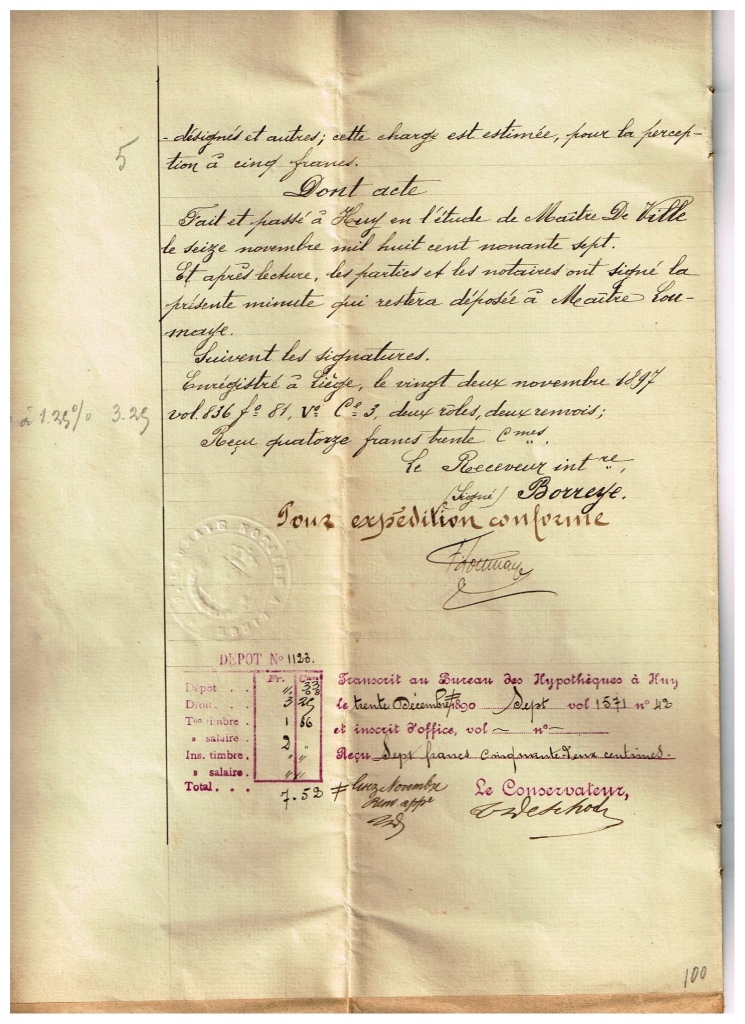 5
-désignés et autres; cette charge est estimée, pour la percep-
tion à cinq francs.
Dont acte
Fait et passé à Huy en l'étude de Maître De Ville
le seize novembre mil huit cent nonante sept.
Et après lecture, les parties et les notaires ont signé la
présente minute qui restera déposée à Maître Lou-
maye.
Suivent les signatures.
Enrégistré à Liège, le vingt deux novembre 1897
à 1.25% 3.25
vol. 836 fo 81, Vo Ce 3, deux rôles, deux renvois;
Reçu quatorze francs trente Cmes.
Le Receveur intre,
(Signé) Borreye.
Pour expédition conforme
Loumaye
DÉPOT No 1123.
Fr. Cen
Dépot . . . "
Droit. . . 3 25
Ton timbre . 1 66
" salaire . 2 "
Ins. timbre. " "
" salaire. " "
Total. . . 7.52
Transcrit au Bureau des Hypothèques à Huy
le trente Décembre ≠ 1890 Sept vol 1571 no 42
et inscrit d'office, vol — no —
Reçu Sept francs cinquante deux centimes.
Le Conservateur,
100